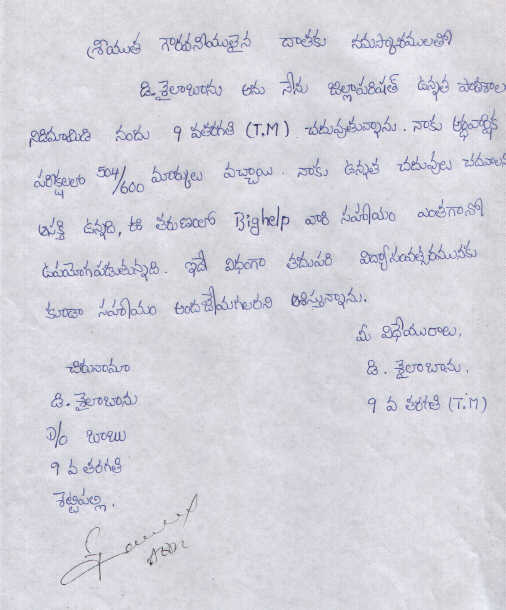 శ్రీయుత గౌరవనీయులైన దాతకు నమస్కారములతో
డి. శైలాబాను అను నేను జిల్లాపరిషత్ ఉన్నత పాఠశాల
నిడిమామిడి నందు 9 వతరగతి (T.M) చదువుతున్నాను. నాకు అర్ధవార్షిక
పరీక్షలలో 504/600 మార్కులు వచ్చాయి. నాకు ఉన్నత చదువులు చదవాలని
ఆసక్తి ఉన్నది, ఈ తరుణంలో Bighelp వారి సహాయం ఎంతగానో
ఉపయోగపడుతున్నది. ఇదే విధంగా తదుపరి విద్యాసంవత్సరమునకు
కూడా సహాయం అందజేయగలరని ఆశిస్తున్నాను.
మీ విధేయురాలు,
డి. శైలాబాను,
9 వ తరగతి (T.M)
చిరునామా
డి. శైలాబాను
D/o బాబు
9 వ తరగతి
శెట్టిపల్లి.